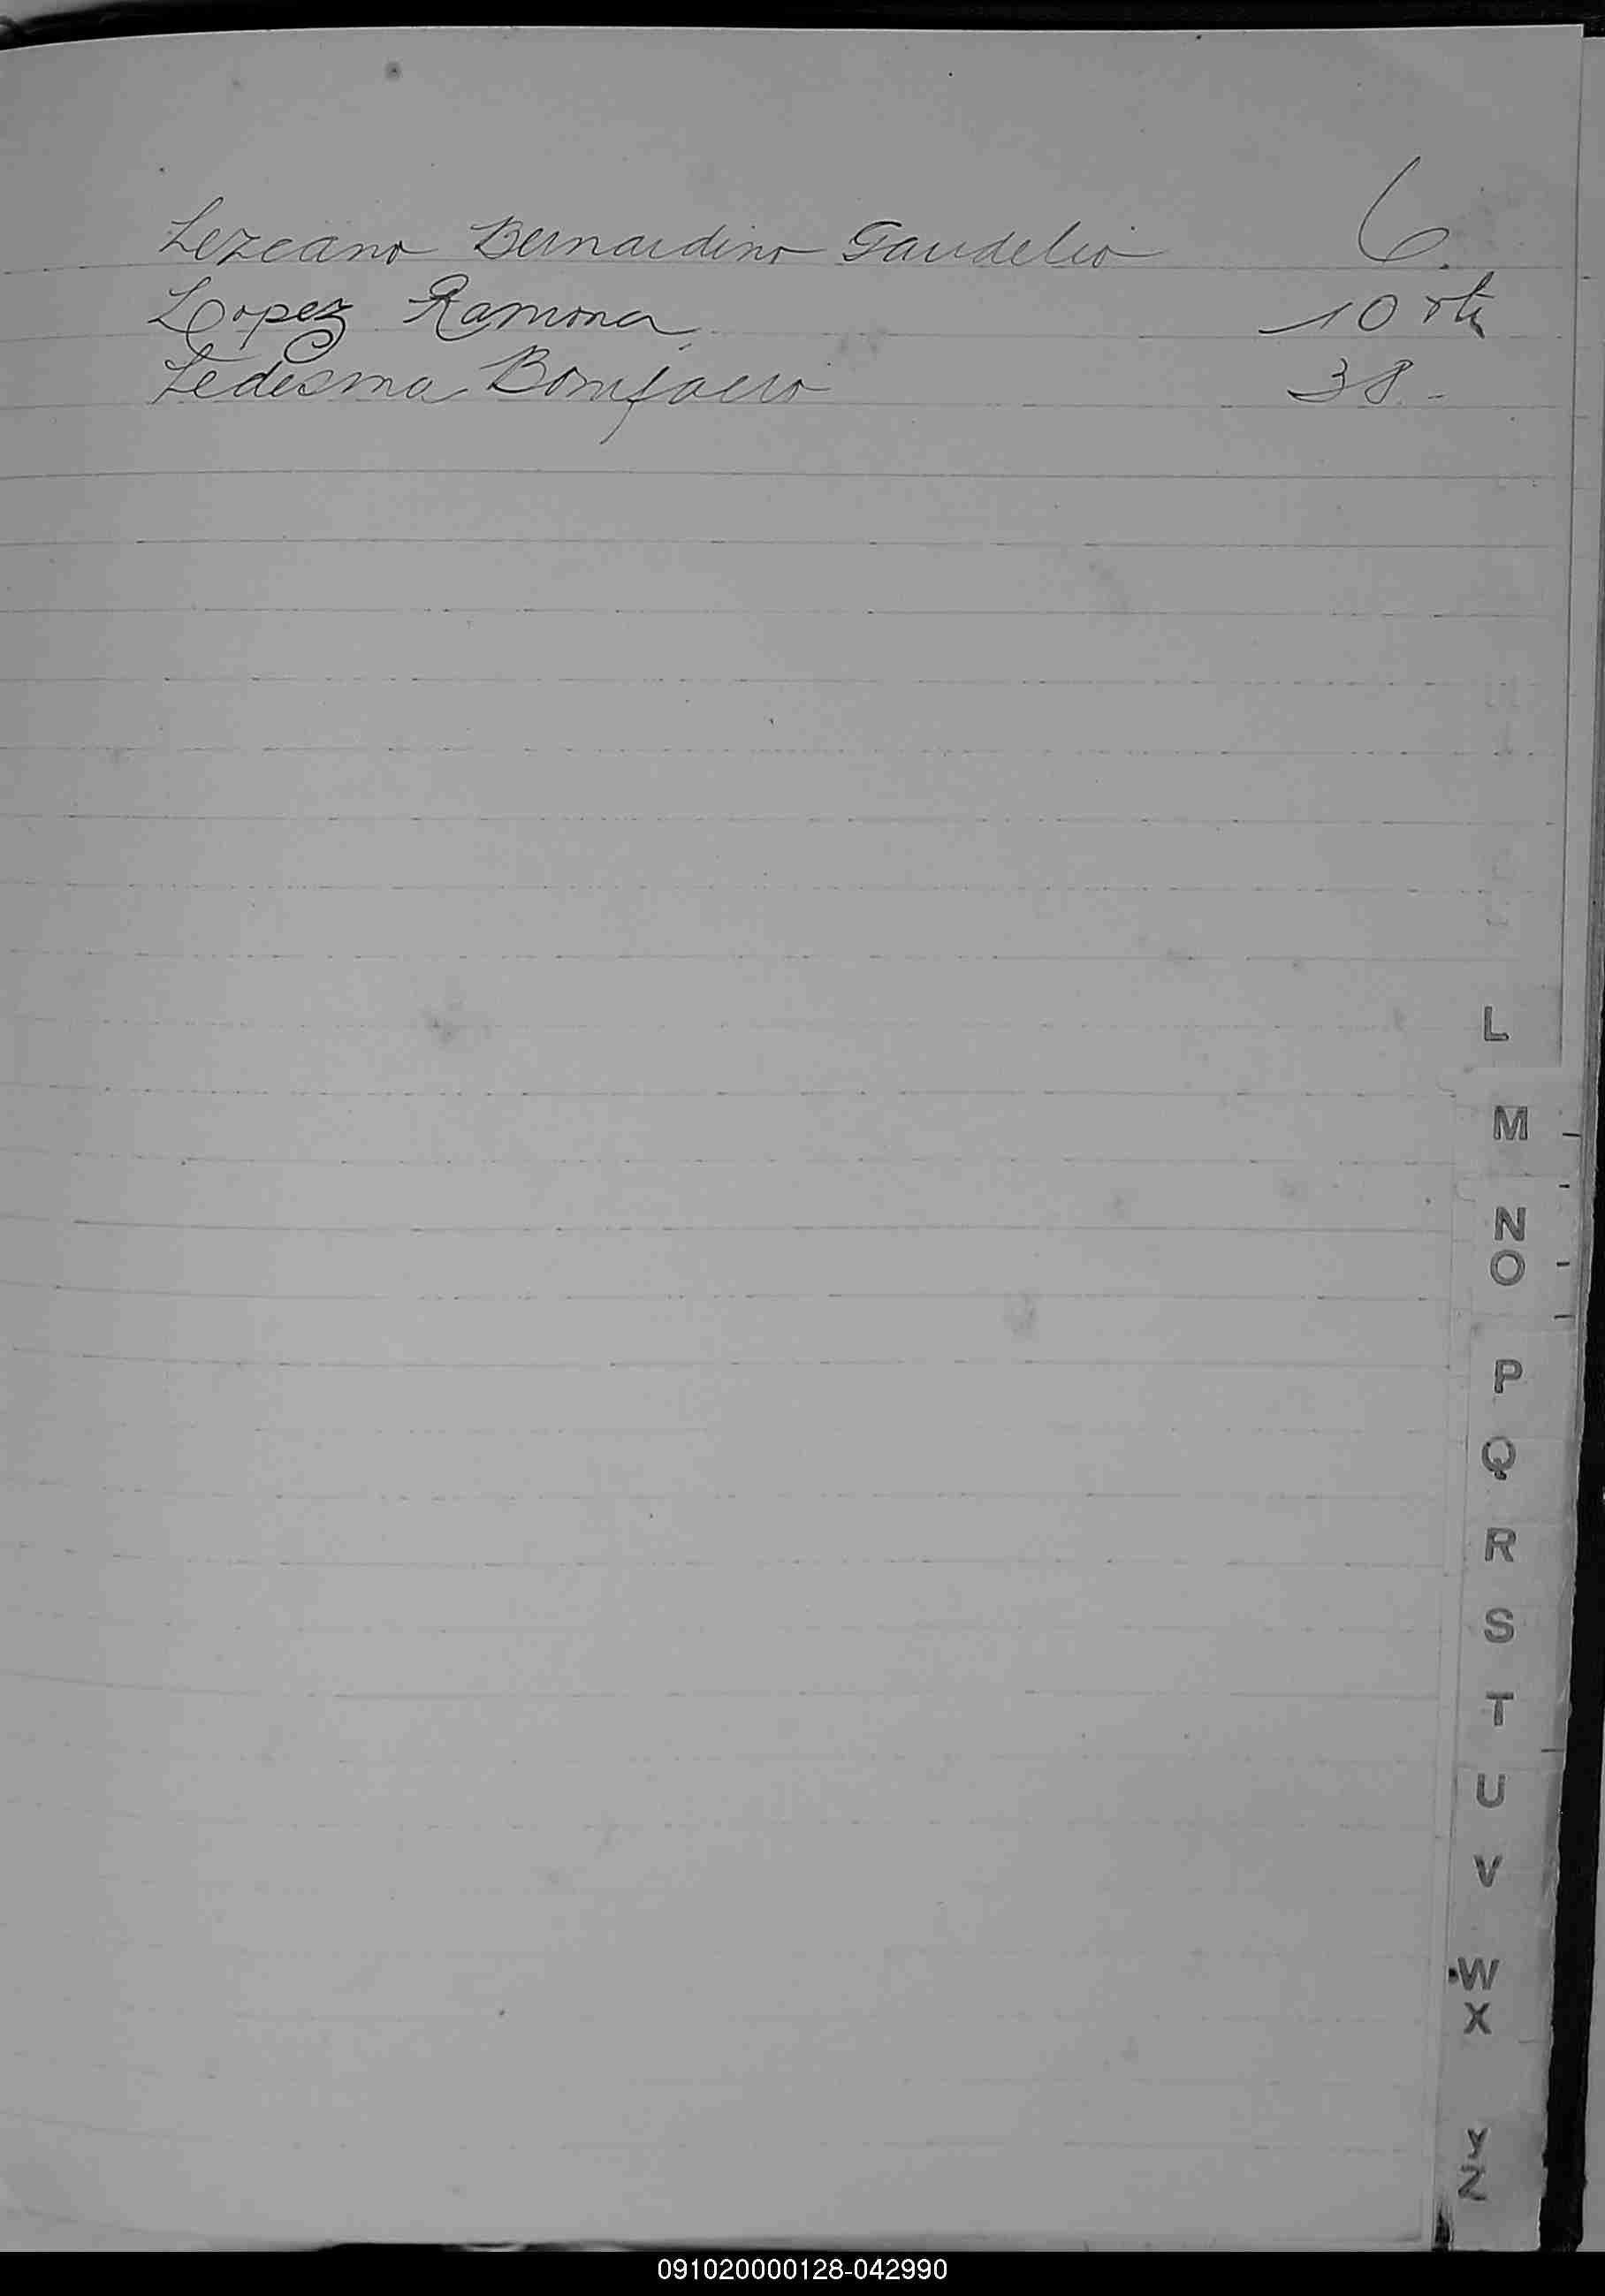 Lezcano Bernardino Gaudelio 6.
Lopez Ramona 10
Ledesma Bonifacio 38.-
L
M
N
O
P
Q
R
S
T
U
V
W
X
Y
Z
091020000128-042990